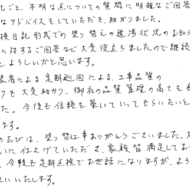 しごと、不明な点についての質問に明確なご回答
なアドバイスもして いただき、助かりました。
換日記形式での塗り替えの進捗状況のお知ら
に対するご回答など大変役立ちましたので継続
とよろしいかと思います。
長による定期巡回による、工事品質の
クも大変助かり、御社の品質管理の高さも
た。今後も信頼を築いていってもらいたいと
ます。
のたびは、塗り替えありがとうございました。
に仕上げていただき、家族皆満足してお
、今後も定期点検でお世話になりますが、よろ
いいたします。